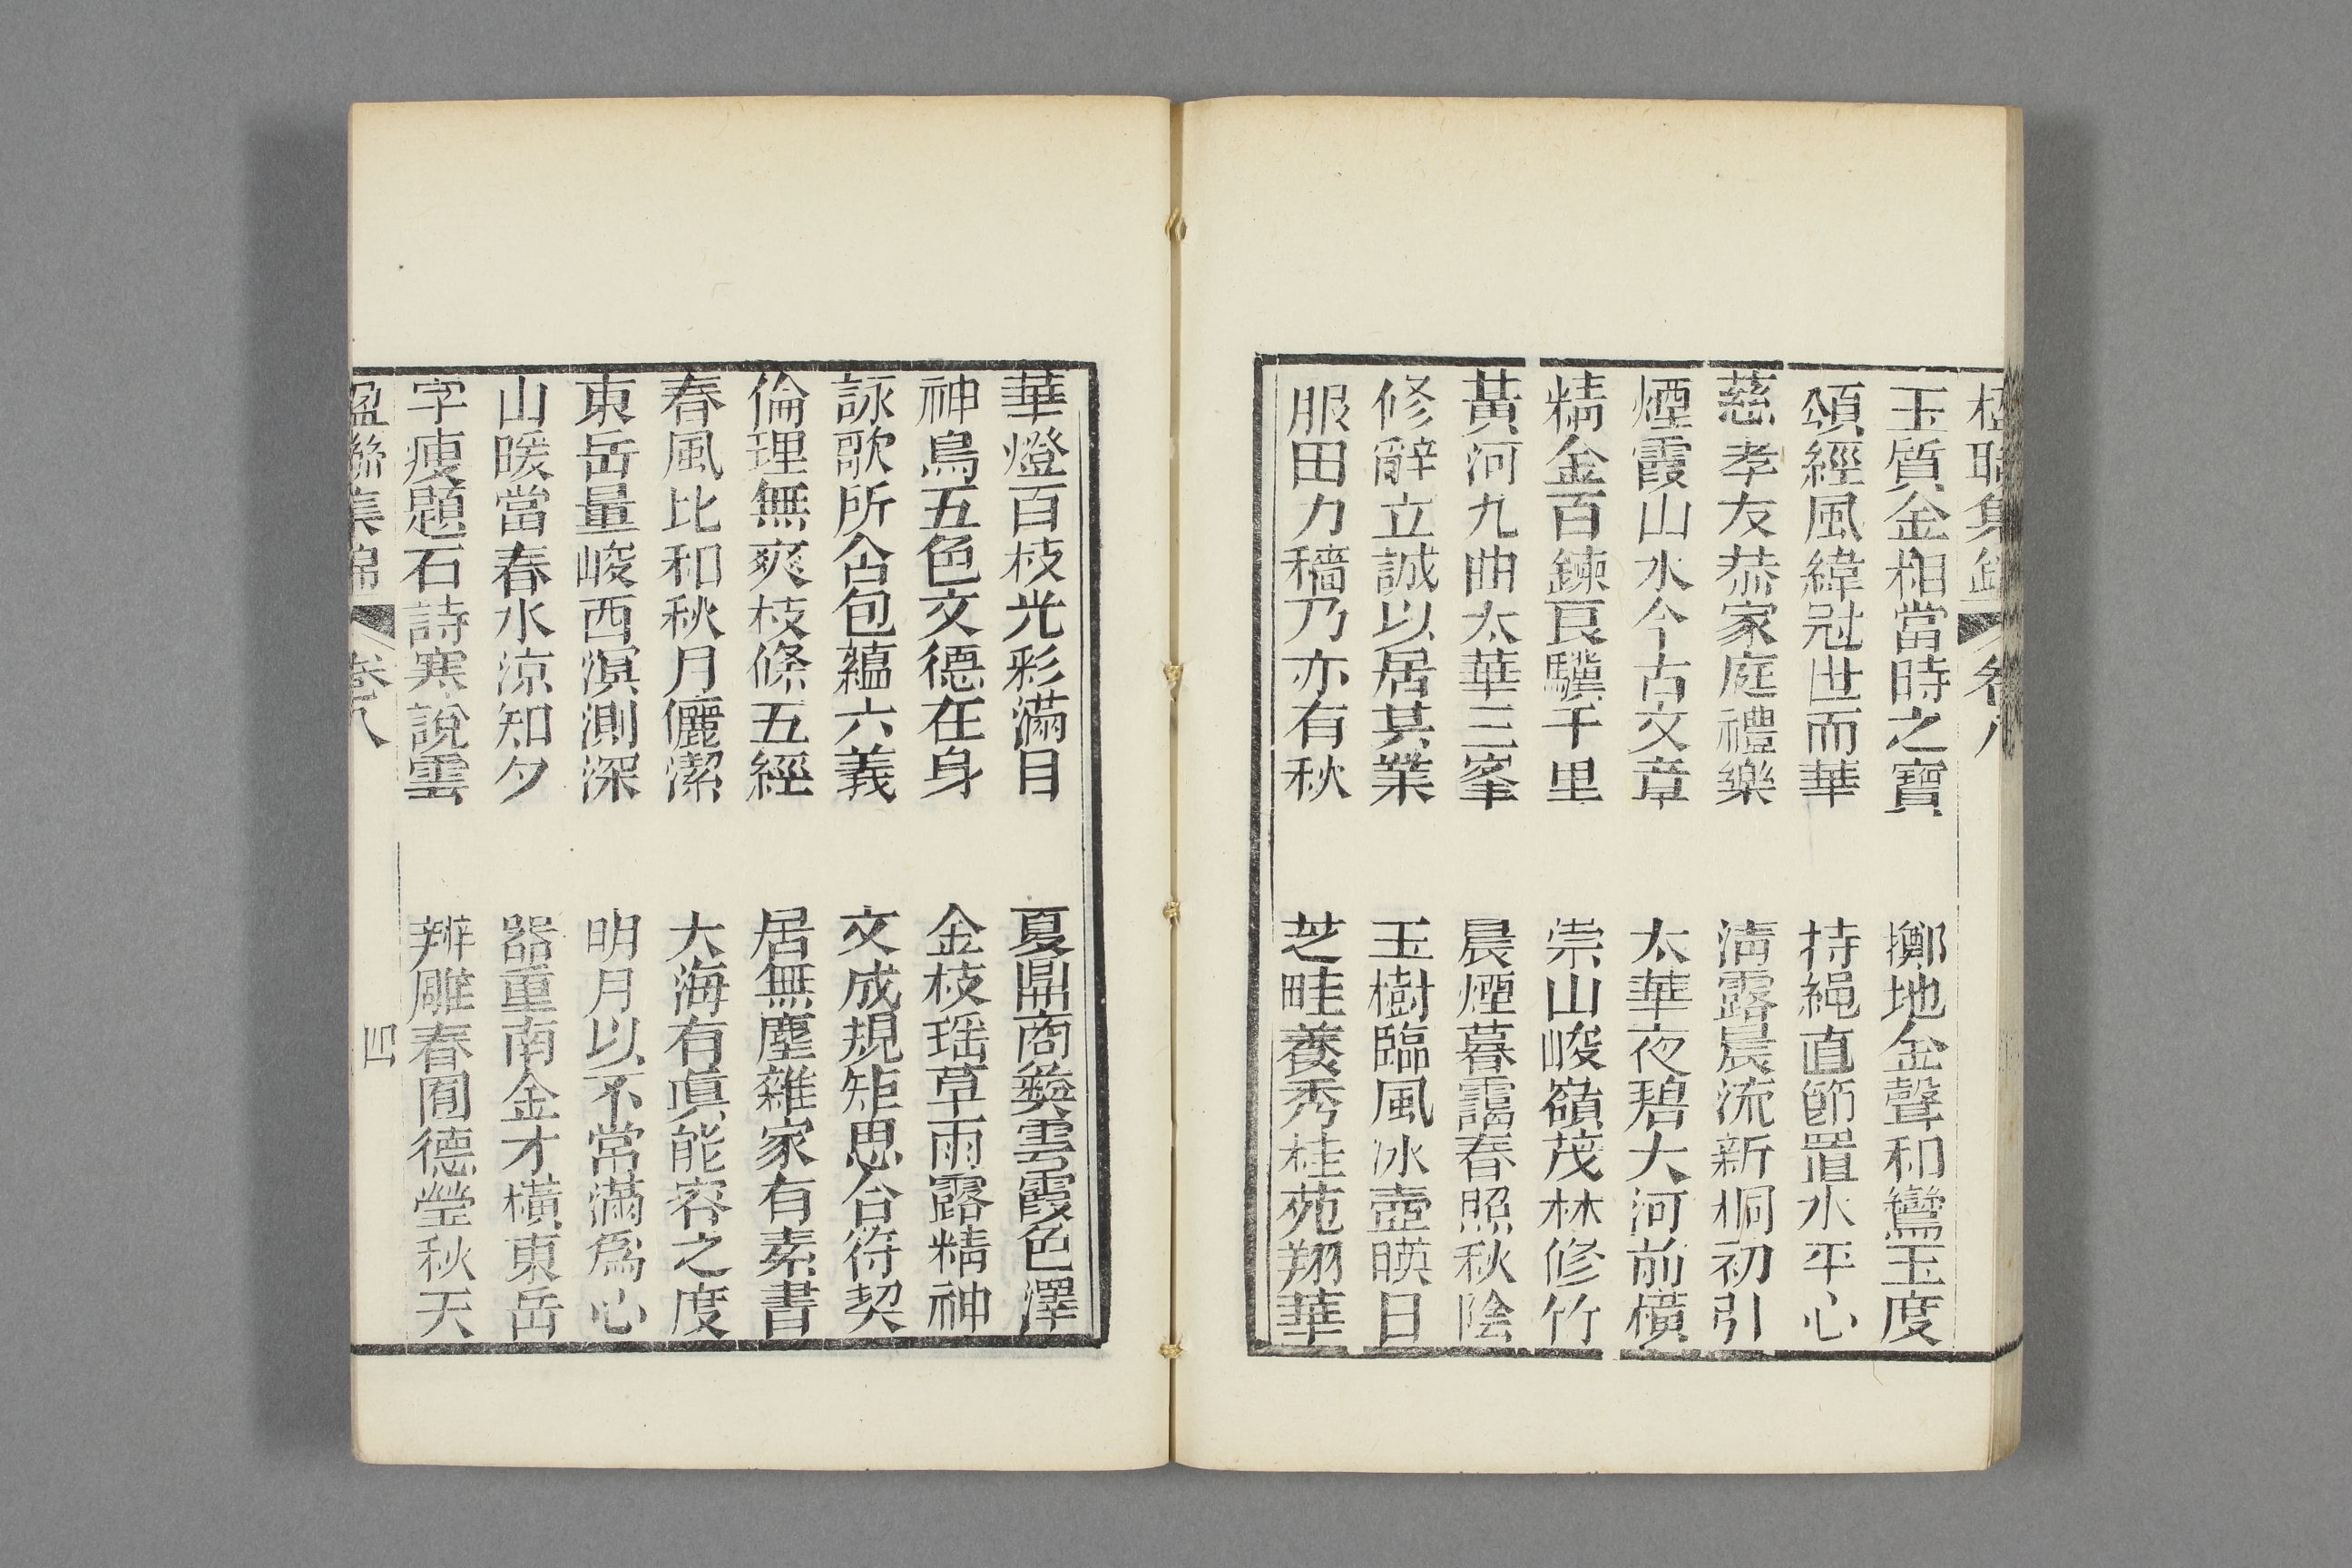 玉質金相當時之寶　擲地金聲和鸞玉度
頌經風緯冠世而華　持繩直節置水平心
慈孝友恭家庭禮樂　淸露晨流新桐初引
煙霞山水今古文章　太華夜碧大河前橫
精金百鍊良驥千里　崇山峻嶺茂林修竹
黃河九曲太華三峯　晨煙暮靄春照秋陰
修辭立誠以居其業　玉樹臨風冰壺暎日
服田力穡乃亦有秋　芝畦養秀桂苑翔華
華燈百枝光彩滿目　夏鼎商彝雲霞色澤
神鳥五色文德在身　金枝瑶草雨露精神
詠歌所含包蘊六義　文成規矩思合符契
倫理無爽枝條五經　居無塵雜家有素書
春風比和秋月儷潔　大海有眞能容之度
東岳量峻西溟測深　明月以不常滿爲心
山暖當春水涼知夕　器重南金才橫東岳
字瘦題石詩寒說雲　辨雕春囿德瑩秋天
楹聯集錦　卷八　四